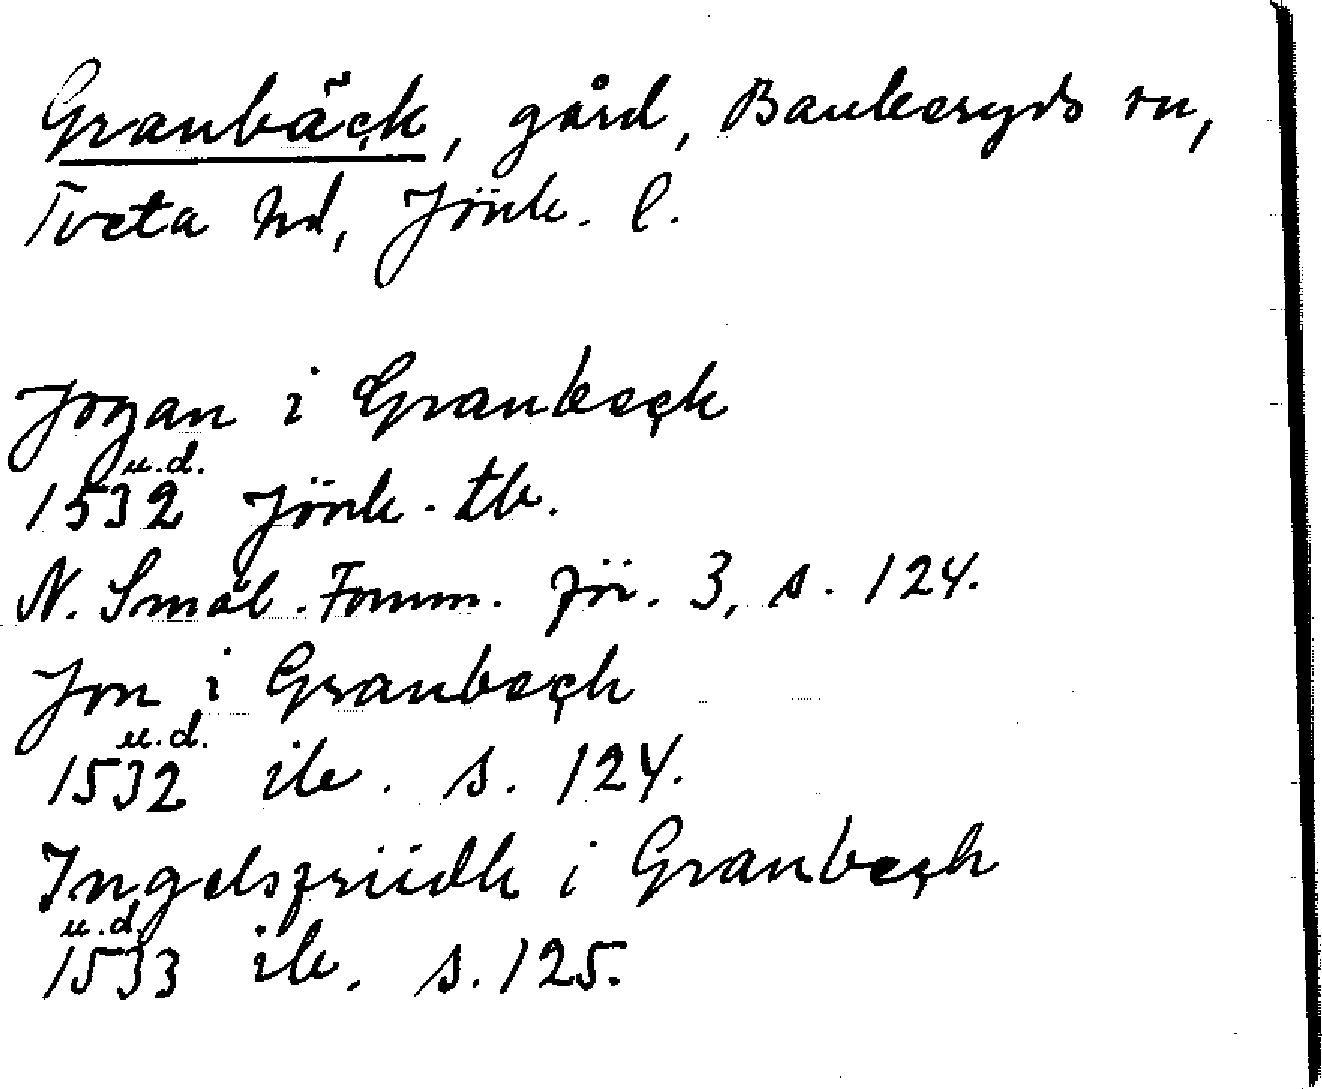 Granbäck, gård, Bankeryds sn,
Tveta hd, Jönk. l.
Jogan i Granbeck
u.d.
1532 Jönk. tb.
N. Smål. Fornm. för. 3, s. 124.
Jon i Granbeck
u.d.
1532 ib. s. 124.
Ingelsfriidh i Granbech
u.d.
1533 ib. s. 125.